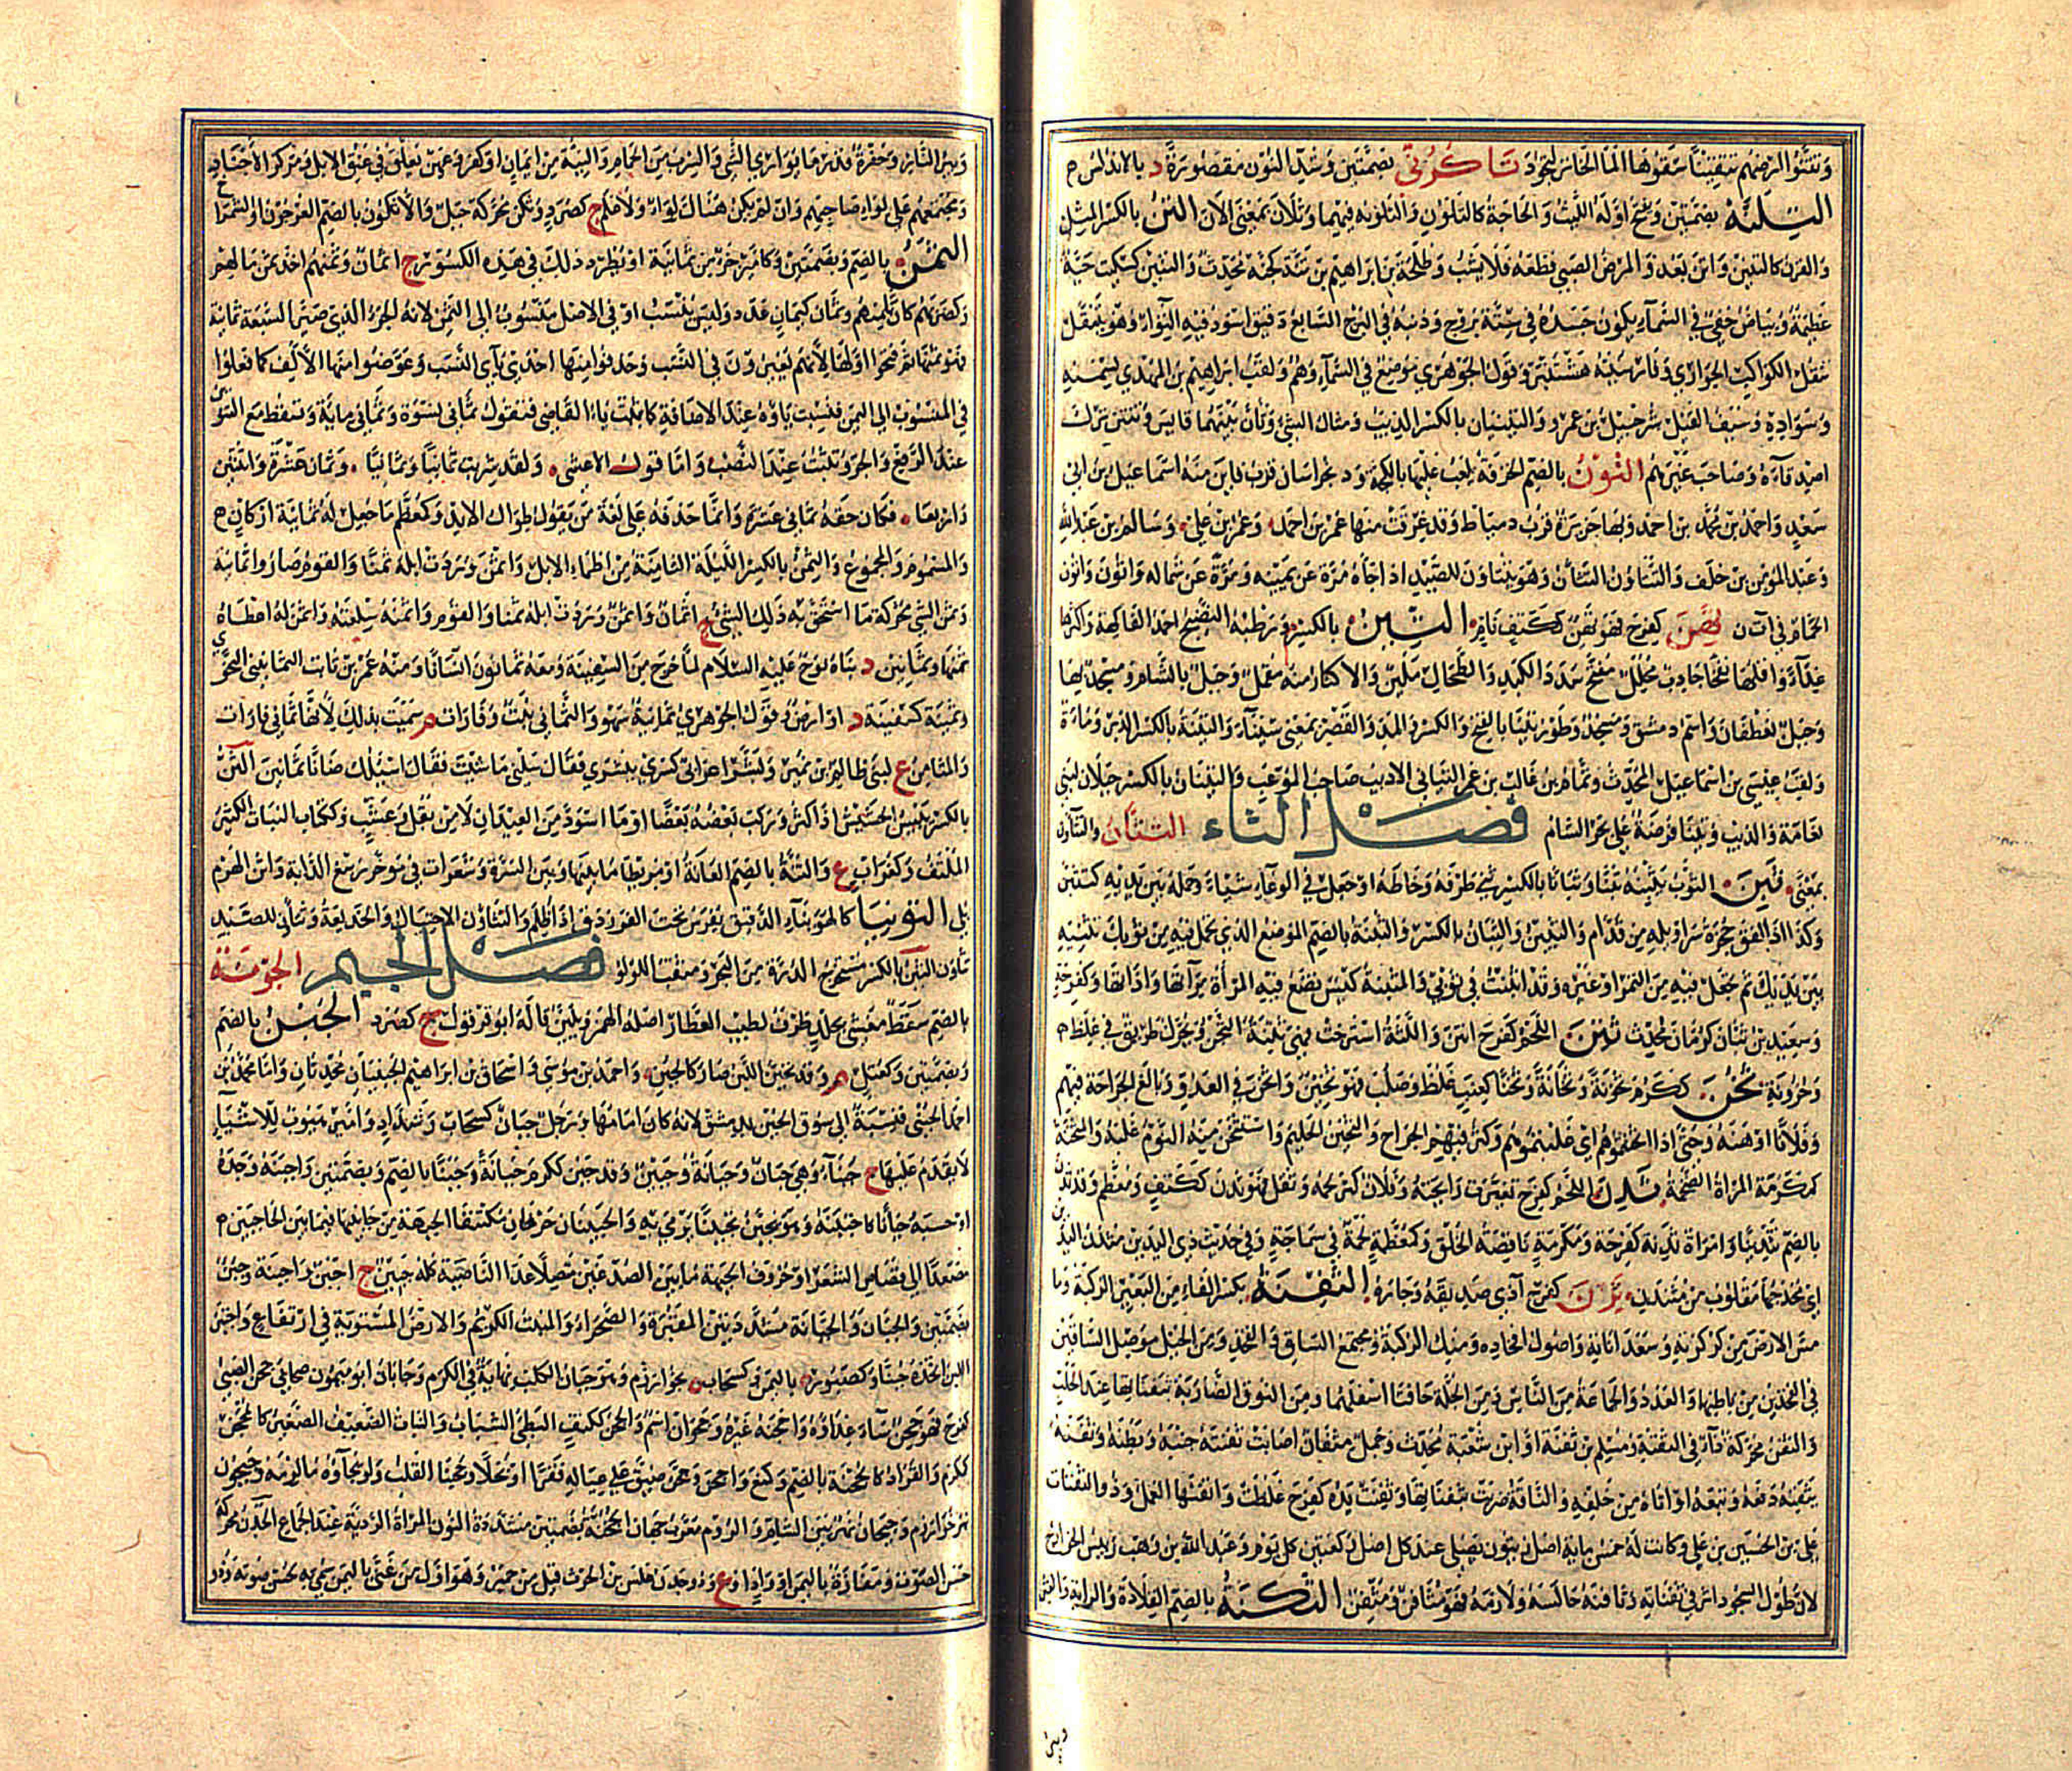 وتتنوا الرجيم تتقينا سقوها الماء الخاثر لتجود تاكرنى بضمتين وشد النون مقصورة د بالاندلس م
التلنة بضمتين ويفتح اوله اللبث والحاجة كالتلون والتلونة فيهما وتلان بمعنى الآن التن بالكسر المثل
والقرن كالتنين واتن بعد والمرض الصبي قطعه فلا يشب وطلحة بن ابراهيم بن تنة كجنة محدث والتنين كسكيت حية
عظيمة وبياض خفي في السماء يكون جسده في ستة بروج وذنبه في البرج السابع دقيق اسود فيه التواء وهو يتنقل
تنقل الكواكب الجواري وفارسيته هشتنبر وقول الجوهري موضع في السماء وهم ولقب ابراهيم بن المهدي لسمنه
وسواده وسيف القيل شرحبيل بن عمرو والتنينان بالكسر الذيب ومثال الشيء وتأن بينهما قايس وتنتن ترك
اصدقاءه وصاحب غيرهم التون بالضم الخرقة يلعب عليها بالكجة ود بخراسان قرب قاين منه اسماعيل بن ابي
سعد واحمد بن محمد بن احمد وبها جزيرة قرب دمياط وقد غرقت منها عمر بن احمد وعمر بن علي وسالم بن عبد الله
وعبد المؤمن بن خلف والتتاون التتأن وهو يتتاون للصيد اذا جاءه مرة عن يمينه ومرة عن شماله واتون واتون
الحمام في ات ن تهن كفرح فهو تهن ككتف نام التين بالكسر م ورطبه النضيج احمد الفاكهة واكثرها
غذاء واقلها نفخا جاذب محلل مفتح سدد الكبد والطحال ملين والاكثار منه مقمل وجبل بالشام ومسجد بها
وجبل لغطفان واسم دمشق ومسجد وطور تينا بالفتح والكسر والمد والقصر بمعنى سيناء والتينة بالكسر الدبر وماءة
ولقب عيسى بن اسماعيل المحدث وتمام بن غالب بن عمر التياني الاديب صاحب الموعب والتينان بالكسر جبلان لبني
نعامة والذيب وتينا فرضة على بحر الشام فصل الثاء التثأن والتثاؤن
بمعنى ثبن الثوب يثبنه ثبنا وثبانا بالكسر ثنى طرفه وخاطه او جعل في الوعاء شياء وحمله بين يديه كتثبن
وكذا اذا لفق حجزة سراويله من قدام والثبين والثبان بالكسر والثبنة بالضم الموضع الذي تحمل فيه من ثوبك تثنيه
بين يديك ثم تجعل فيه من التمر او غيره وقد اثبنت في ثوبي والمثبنة كيس تضع فيه المراة مرآتها واداتها وكفرحة
وسعيد بن ثبان كرمان محدث ثتن اللحم كفرح انتن واللثة استرخت فهي ثتنة الثجن ويحرك طريق في غلظ م
وحزونة ثخن ككرم ثخونة وثخانة وثخنا كعنب غلظ وصلب فهو ثخين واثخن في العدو بالغ الجراحة فيهم
وفلانا اوهنه وحتى اذا اثخنتموهم اي غلبتموهم وكثر فيهم الجراح والثخين الحليم واستثخن منه النوم غلبه والمثخنة
كمكرمة المراة الضخمة ثدن اللحم كفرح تغيرت رايحته وفلان كثر لحمه وثقل فهو ثدن ككتف ومعظم وقد ثدن
بالضم تثدينا وامراة ثدنة كفرحة ومكرمة ناقصة الخلق وكمعظمة لحمة في سماجة وفي حديث ذي اليدين مثدن اليد
اي مخدجها مقلوب من مثند ثرن كفرح آذى صديقه وجاره الثفنة بكسر الفاء من البعير الركبة وما
مس الارض من كركرته وسعداناته واصول افخاذه ومنك الركبة ومجتمع الساق والفخذ ومن الخيل موصل الساقين
في الفخذين من باطنها والعدد والجماعة من الناس ومن الجلة حافتا اسفلها ومن النوق الضاربة بثفناتها عند الحلب
والثفن محركة داء في الثفنة ومسلم بن ثفنة او ابن شعبة محدث وجمل مثفان اصابت ثفنته جنبه وبطنه وثفنه
يثفنه دفعه وتبعه او اتاه من خلفه والناقة ضربت بثفناتها وثفنت يده كفرح غلظت واثفنها العمل وذو الثفنات
علي بن الحسين بن علي وكانت له خمس ماية اصل زيتون يصلي عند كل اصل ركعتين كل يوم وعبد الله بن وهب رييس الخوارج
لان طول السجود اثر في ثفناته وثافنه جالسه ولازمه فهو مثافن ومثفن الثكنة بالضم القلادة والراية والقبر
وبئر
وبير النار وحفرة قدر ما يواري الشي والسرب من الحمام والنية من ايمان او كفر وعهن يعلق في عنق الابل ومركز الاجناد
ومجتمعهم على لواء صاحبهم وان لم يكن هناك لواء ولا علم ج كصرد وثكن محركة جبل والاثكون بالضم العرجون او الشمراخ
الثمن بالضم وبضمتين وكامير جزء من ثمانية او يطرد ذلك في هذه الكسور ج اثمان وثمنهم اخذ ثمن مالهم
وكضربهم كان ثامنهم وثمان كيمان عدد وليس بنسب او في الاصل منسوب الى الثمن لانه الجزء الذي صير السبعة ثمانية
فهو ثمنها ثم فتحوا اولها لانهم يغيرون في النسب وحذفوا منها احدى ياءي النسب وعوضوا منها الالف كما فعلوا
في المنسوب الى اليمن فثبتت ياؤه عند الاضافة كما ثبتت ياء القاضي فتقول ثماني نسوة وثماني ماية وتسقط مع التنوين
عند الرفع والجر وتثبت عند النصب واما قول الاعشى ولقد شربت ثمانيا وثمانيا وثمان عشرة واثنتين
واربعا فكان حقه ثماني عشرة وانما حذفه على لغة من يقول طوال الايد وكمعظم ما جعل له ثمانية اركان م
والمسموم والمجموع والثمن بالكسر الليلة الثامنة من اظماء الابل واثمن وردت ابله ثمنا والقوم صاروا ثمانية
وثمن الشيء محركة ما استحق به ذلك الشيء ج اثمان واثمن وردت ابله ثمنا والقوم واثمنه سلعته واثمن له اعطاه
ثمنها وثمانين د بناه نوح عليه السلام لما خرج من السفينة ومعه ثمانون انسانا ومنه عمر بن ثابت الثمانيني النحوي
وثمينة كسفينة د او ارض وقول الجوهري ثمانية سهو والثماني نبت وقارات م سميت بذلك لانها ثماني قارات
والمثامن ع لبني ظالم بن نمير وبشر اعرابي كسرى ببشرى فقال سلني ما شيت فقال اسئلك ضانا ثمانين الثن
بالكسر يبيس الحشيش اذا كثر وركب بعضه بعضا او ما اسود من العيدان لا من بقل وعشب وككتاب النبات الكثير
الملتف وكغراب ع والثنة بالضم العانة او مريطاء ما بينها وبين السرة وشعرات في موخر رسغ الدابة واثن الهرم
بلي الثوينا كالهوينا الدقيق يفرش تحت الفرزدق اذا طلم والتثاون الاحتيال والخديعة وتثأن للصيد
تثاون الثين بالكسر مستخرج الدرة من البحر ومثقب اللؤلؤ فصل الجيم الجونة
بالضم سفط مغشى بجلد ظرف لطيب العطار اصله الهمز ويلين قاله ابو قرقول ج كصرد الجبن بالضم
وبضمتين وكعتل م وقد تجبن اللبن صار كالجبن واحمد بن موسى واسحاق بن ابراهيم الجبنيان محدثان واما محمد بن
احمد الجبني فنسبة الى سوق الجبن بدمشق لانه كان امامها ورجل جبان كسحاب وشداد وامير هيوب للاشياء
لا يقدم عليها ج جبناء وهي جبان وجبانة وجبين وقد جبن ككرم جبانة وجبنا بالضم وبضمتين واجبنه وجده
او حسبه جبانا كاجتبنه وهو يجبن تجبينا يرمى به والجبينان حرفان مكتنفا الجبهة من جانبيها فيما بين الحاجبين م
مصعدا الى قصاص الشعر او حروف الجبهة ما بين الصدغين متصلا عند الناصية كله جبين ج اجبن واجبنة وجبن
بضمتين والجبان والجبانة مشددتين المقبرة والصحراء والمنبت الكريم والارض المستوية في ارتفاع واجتبن
اللبن اتخذه جبنا وكصبور ة باليمن وكسحاب ة بخوارزم وهو جبان الكلب نهاية في الكرم وجابان ابو ميمون صحابي جحن الصبي
كفرح فهو جحن ساء غذاوه واجحنه غيره وجحوان اسم والجحن ككتف البطئ الشباب والنبات الضعيف الصغير كالمجحن
كمكرم والقراد كالجحنة بالضم وكمنع واجحن وجحن ضيق على عياله فقرا او بخلا وجحينا القلب ولويجآؤه ما لزمه وجيحون
نهر خوارزم وجيحان نهر بين الشام والروم معرب جهان الجخنة بضمتين مشددة النون المراة الردية عند الجماع الجدن محركة
حسن الصوت ومفازة باليمن او واد او ع وذو جدن قيل من الحرث قيل من حمير وهو اول من غنى باليمن سمي به لحسن صوته وذو